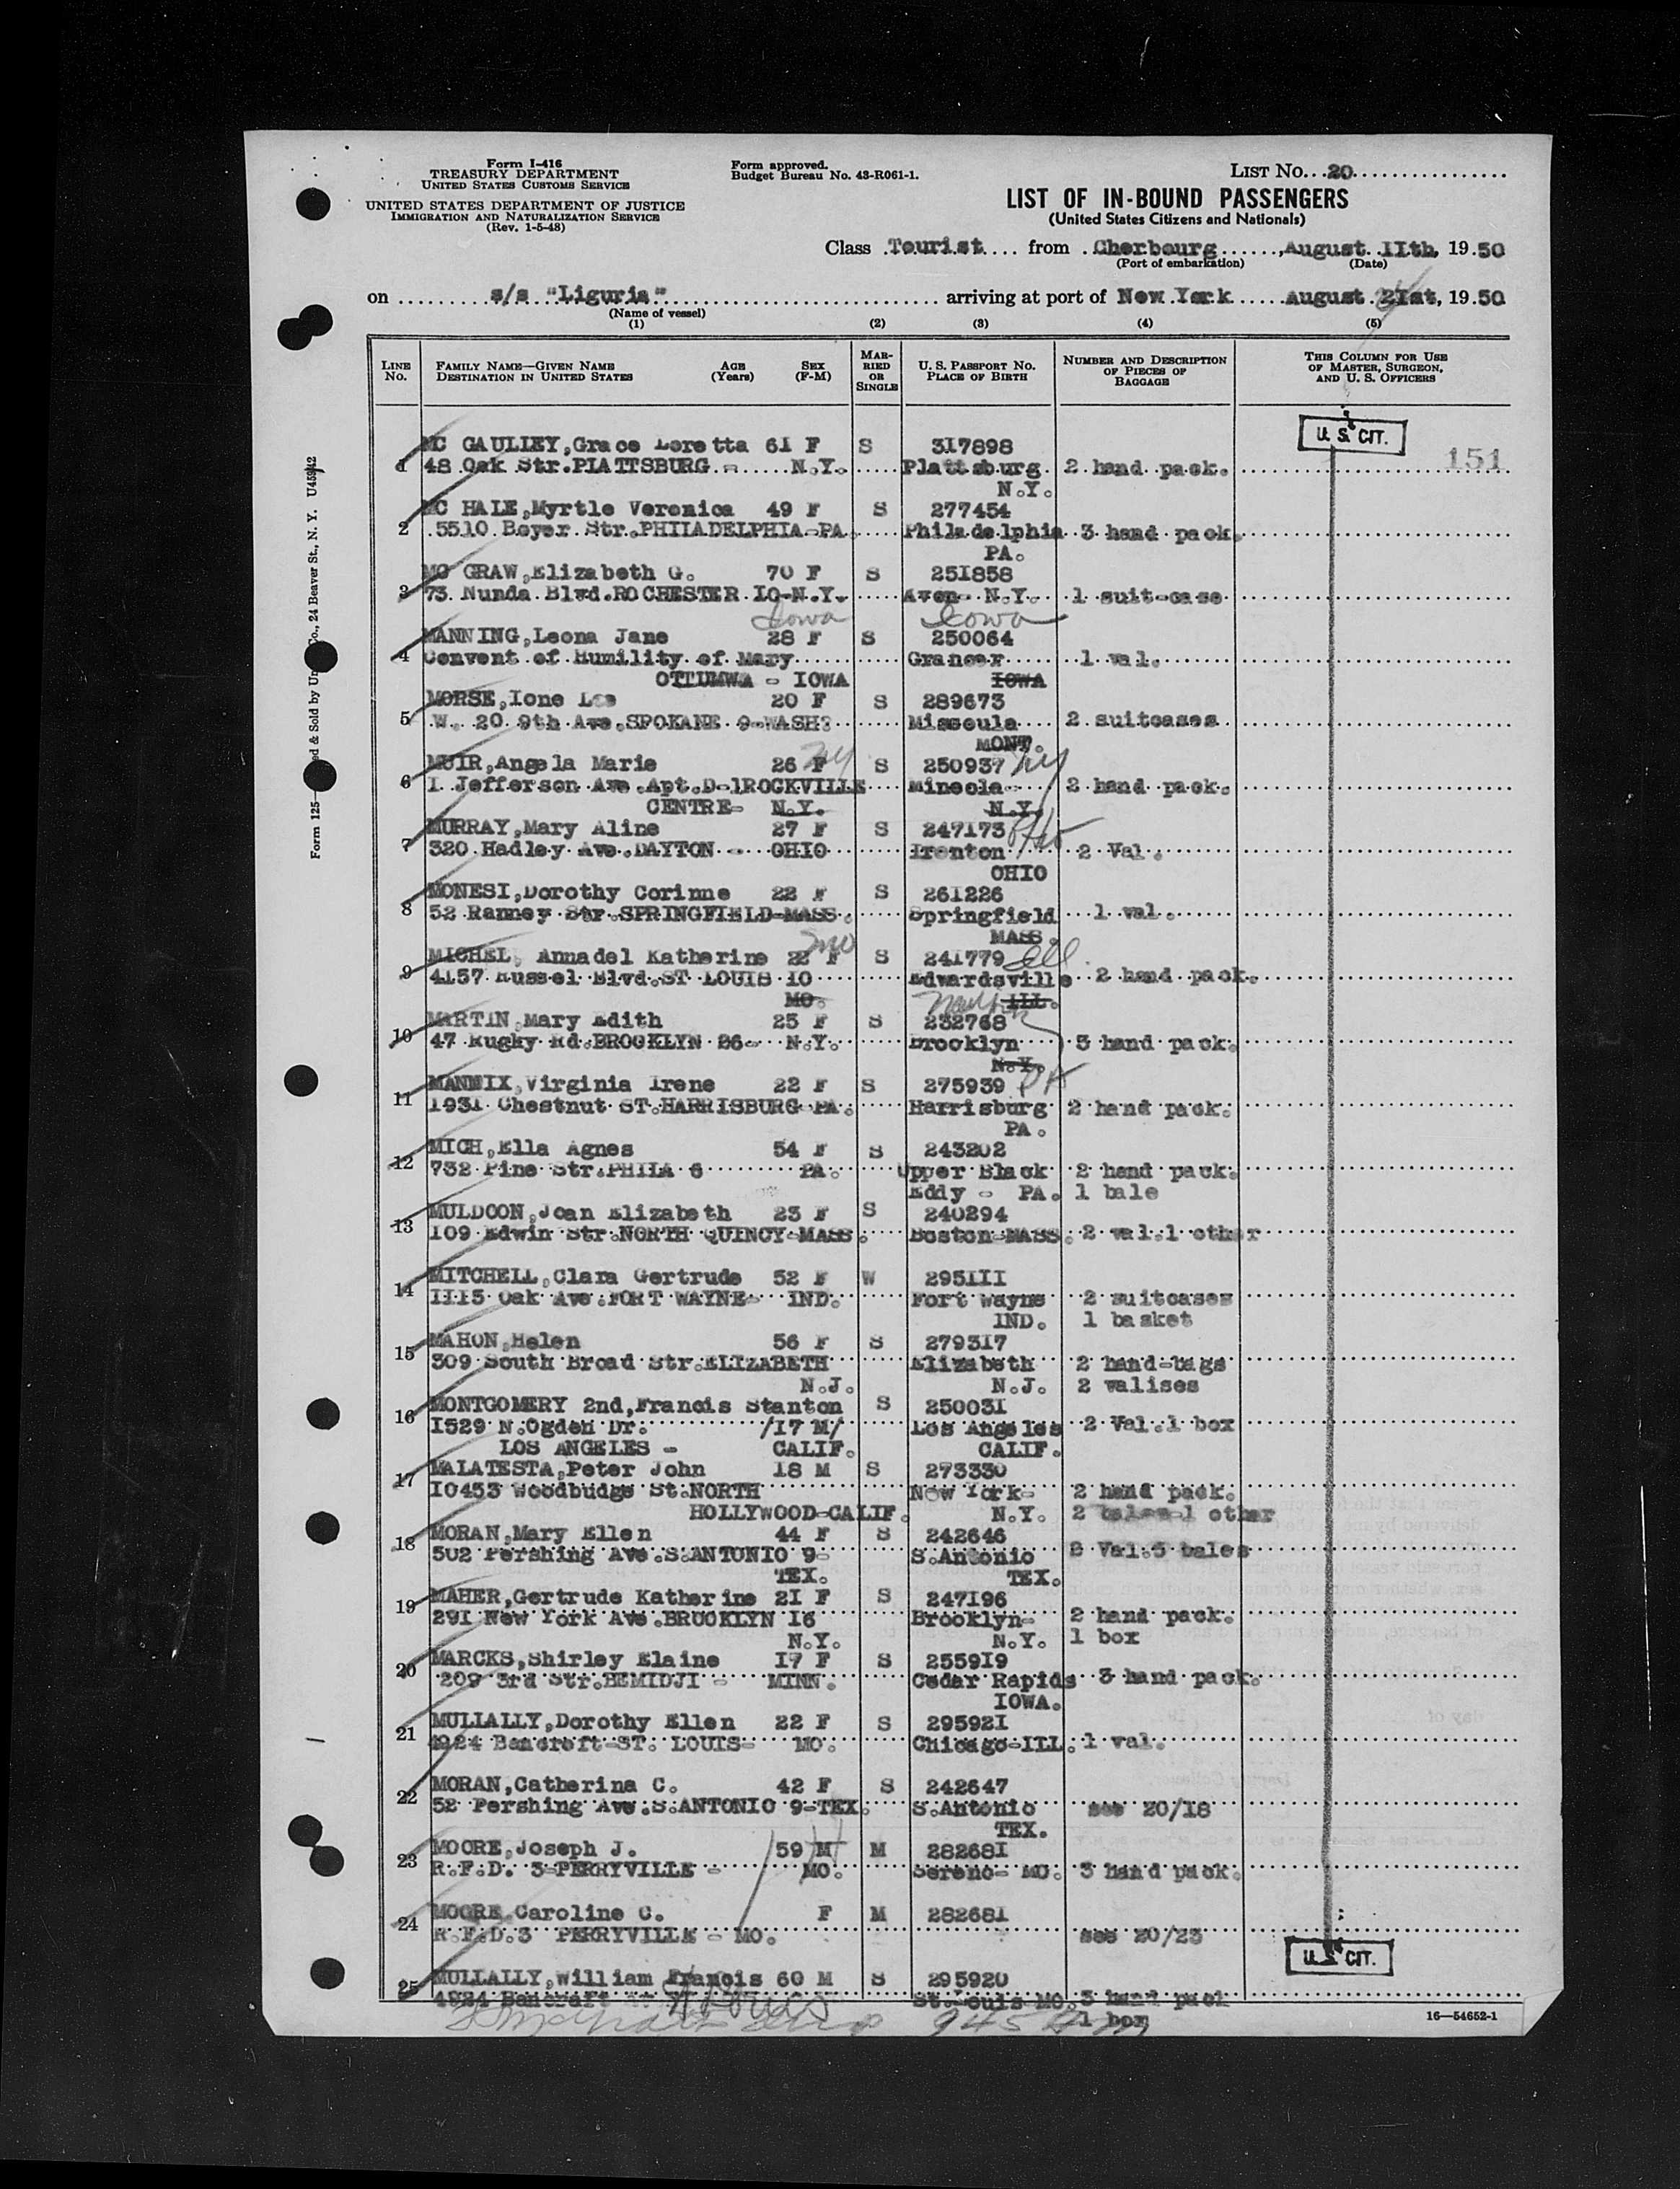 Form I-416
TREASURY DEPARTMENT
UNITED STATES CUSTOMS SERVICE
UNITED STATES DEPARTMENT OF JUSTICE
IMMIGRATION AND NATURALIZATION SERVICE
(Rev. 1-5-48)
Form approved.
Budget Bureau No. 43-R061-1.
LIST No. 20
LIST OF IN-BOUND PASSENGERS
(United States Citizens and Nationals)
Class Tourist from Cherbourg, August 11th, 1950
(Port of embarkation) (Date)
on s/s "Liguria" arriving at port of New York August 21st, 1950
(Name of vessel)
(1) (2) (3) (4) (5)
LINE No. FAMILY NAME—GIVEN NAME DESTINATION IN UNITED STATES AGE (Years) SEX (F-M) MARRIED OR SINGLE U. S. PASSPORT No. PLACE OF BIRTH NUMBER AND DESCRIPTION OF PIECES OF BAGGAGE THIS COLUMN FOR USE OF MASTER, SURGEON, AND U. S. OFFICERS
U. S. CIT.
151
MC GAULLEY,Grace Loretta 61 F S 317898
1 48 Oak Str.PLATTSBURG - N.Y. Plattsburg 2 hand pack.
N.Y.
MC HALE,Myrtle Veronica 49 F S 277454
2 5510 Beyer Str.PHILADELPHIA-PA. Philadelphia 3 hand pack.
PA.
MC GRAW,Elizabeth G. 70 F S 251858
3 73 Nunda Blvd.ROCHESTER 10-N.Y. Avon- N.Y. 1 suit-case
Iowa Iowa
MANNING,Leona Jane 28 F S 250064
4 Convent of Humility of Mary Granger 1 val.
OTTUMWA - IOWA IOWA
MORSE,Ione Lee 20 F S 289673
5 W. 20 9th Ave.SPOKANE 9-WASH? Missoula 2 suitcases
MONT.
MUIR,Angela Marie 26 F NY S 250937 NY
6 1 Jefferson Ave.Apt.D-1ROCKVILLE Mineola- 2 hand pack.
CENTRE- N.Y. N.Y.
MURRAY,Mary Aline 27 F S 247173
7 320 Hadley Ave.DAYTON - OHIO Trenton 2 Val.
OHIO
MONESI,Dorothy Corinne 22 F S 261226
8 52 Ranney Str.SPRINGFIELD-MASS. Springfield 1 val.
MASS.
Mo
MICHEL, Annadel Katherine 22 F S 241779 Ill.
9 4157 Russel Blvd.ST LOUIS 10 Edwardsville 2 hand pack.
MO. ILL.
MARTIN,Mary Edith 25 F S 232768
10 47 Rugky Rd.BROOKLYN 26- N.Y. Brooklyn 3 hand pack.
N.Y.
MANNIX,Virginia Irene 22 F S 275939 PA
11 1931 Chestnut ST.HARRISBURG-PA. Harrisburg 2 hand pack.
PA.
MICH,Ella Agnes 54 F S 243202
12 732 Pine Str.PHILA 6 PA. Upper Black 2 hand pack.
Eddy - PA. 1 bale
MULDOON,Joan Elizabeth 23 F S 240294
13 109 Edwin Str.NORTH QUINCY-MASS. Boston-MASS. 2 val.1 other
MITCHELL,Clara Gertrude 52 F W 295111
14 1115 Oak Ave.FORT WAYNE- IND. Fort Wayne 2 suitcases
IND. 1 basket
MAHON,Helen 56 F S 279317
15 309 South Broad Str.ELIZABETH Elizabeth 2 hand-bags
N.J. N.J. 2 valises
MONTGOMERY 2nd,Francis Stanton S 250031
16 1529 N.Ogden Dr. /17 M/ Los Angeles 2 Val.1 box
LOS ANGELES - CALIF. CALIF.
MALATESTA,Peter John 18 M S 273330
17 10453 Woodbudge St.NORTH New York- 2 hand pack.
HOLLYWOOD-CALIF. N.Y. 2 bales-1 other
MORAN,Mary Ellen 44 F S 242646
18 502 Pershing Ave.S.ANTONIO 9- S.Antonio 2 Val.5 bales
TEX. TEX.
MAHER,Gertrude Katherine 21 F S 247196
19 291 New York Ave.BROOKLYN 16 Brooklyn- 2 hand pack.
N.Y. N.Y. 1 box
MARCKS,Shirley Elaine 17 F S 255919
20 209 3rd Str.BEMIDJI - MINN. Cedar Rapids 3 hand pack.
IOWA.
MULLALLY,Dorothy Ellen 22 F S 295921
21 4924 Bancroft-ST. LOUIS- MO. Chicago-ILL. 1 val.
MORAN,Catherina C. 42 F S 242647
22 52 Pershing Ave.S.ANTONIO 9-TEX. S.Antonio see 20/18
TEX.
MOORE,Joseph J. 59 M M 282681
23 R.F.D. 3-PERRYVILLE - MO. Sereno- MO. 3 hand pack.
MOORE,Caroline C. F M 282681
24 R.F.D.3 PERRYVILLE - MO. see 20/23
U. S. CIT.
MULLALLY,William Francis 60 M S 295920
25 4924 Bancroft St. St.Louis MO. 3 hand pack
1 box
16—54652-1
Form 125— ed & Sold by Un Co., 24 Beaver St., N. Y.